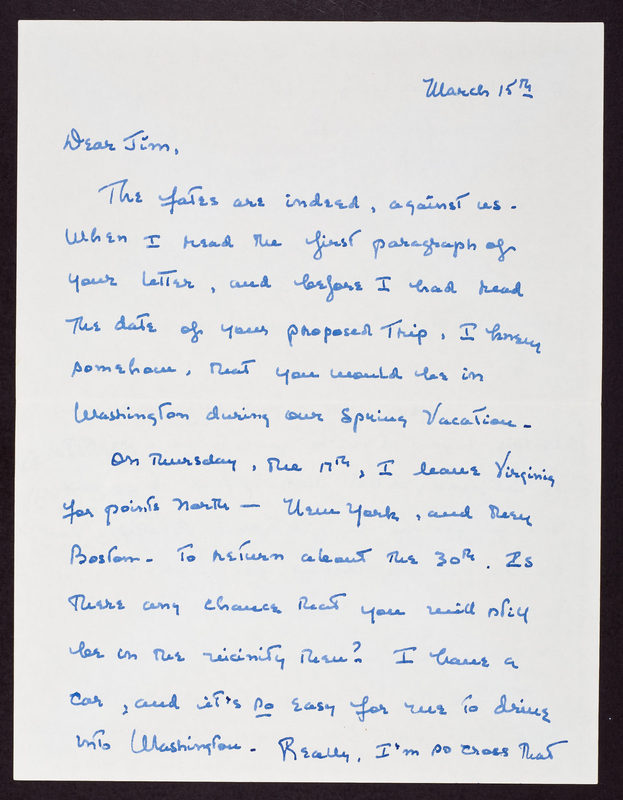 March 15th
Dear Jim,
The fates are indeed, against us.
When I read the first paragraph of
your letter, and before I had read
the date of your proposed trip, I knew
somehow, that you would be in
Washington during our Spring Vacation.
On Thursday, the 17th, I leave Virginia
for points North — New York, and then
Boston. To return about the 30th. Is
there any chance that you will still
be in the vicinity then? I have a
car, and it's so easy for me to drive
into Washington. Really, I'm so cross that